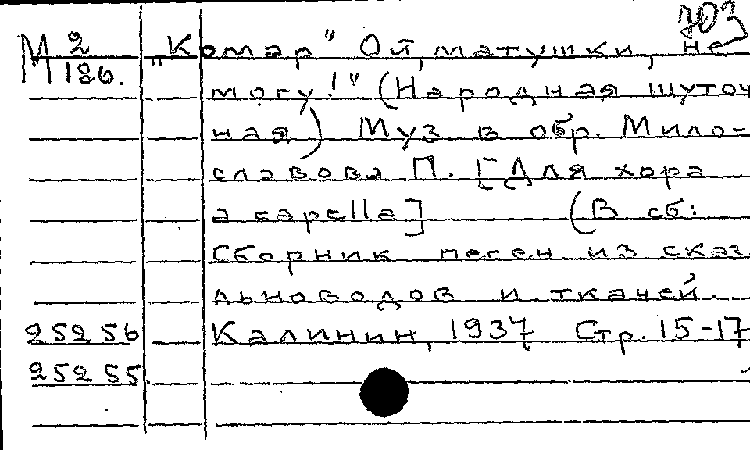 703
М 2/186. „Комар" Ой, матушки, не
могу!" (Народная шуточ
ная) Муз в обр. Мило-
славова П. [Для хора
a capella] (В сб:
Сборник песен из сказ
льноводов и ткачей.
25256 Калинин, 1937 Стр. 15-17
25255